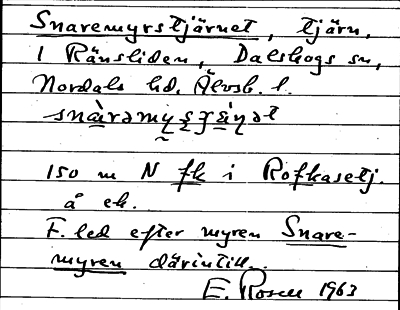 Snaremyrstjärnet, tjärn,
i Ränsliden, Dalskogs sn,
Nordals hd, Älvsb. l.
150 m N fk i Rofkasetj.
å ek.
F. led efter myren Snare-
myren därintill.
E. Rosell 1963